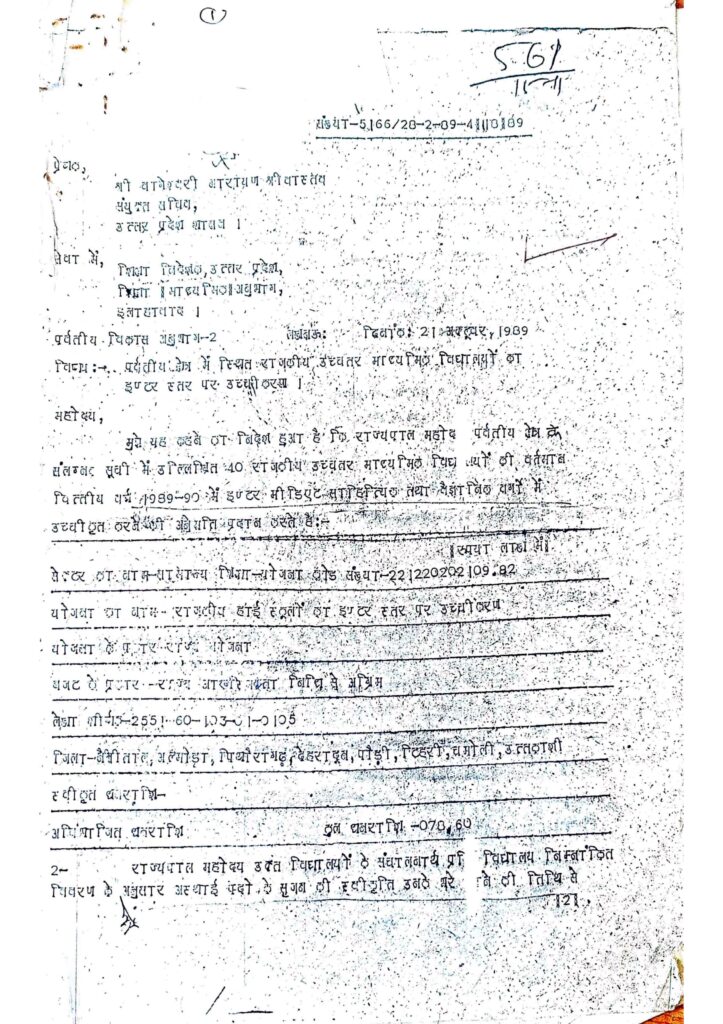 1
561
संख्या-5166/28-2-89-4||18|89
प्रेषक,
श्री बागेश्वरी नारायण श्रीवास्तव
संयुक्त सचिव,
उत्तर प्रदेश शासन ।
सेवा में,
शिक्षा निदेशक, उत्तर प्रदेश,
शिक्षा |माध्यमिक| अनुभाग,
इलाहाबाद ।
पर्वतीय विकास अनुभाग-2 लखनऊ: दिनांक: 21 अक्टूबर, 1989
विषय:- पर्वतीय क्षेत्र में स्थित राजकीय उच्चतर माध्यमिक विद्यालयों का
इण्टर स्तर पर उच्चीकरण ।
महोदय,
मुझे यह कहने का निदेश हुआ है कि राज्यपाल महोद पर्वतीय क्षेत्र के
संलग्नक सूची में उल्लिखित 40 राजकीय उच्चतर माध्यमिक विद्य लयों को वर्तमान
वित्तीय वर्ष 1989-90 में इण्टर मीडिएट साहित्यिक तथा वैज्ञानिक वर्गों में
उच्चीकृत करने की अनुमति प्रदान करते हैं:-
|रुपया लाख में|
सेक्टर का नाम-सामान्य शिक्षा-योजना कोड संख्या-22|220202|09.82
योजना का नाम- राजकीय हाई स्कूलों का इण्टर स्तर पर उच्चीकरण
योजना के प्रकार राज्य योजना
बजट के प्रकार -राज्य आकस्मिकता निधि से अग्रिम
लेखा शीर्षक-2551-60-103-01-0105
जिला-नैनीताल, अल्मोड़ा, पिथौरागढ़, देहरादून, पौड़ी, टिहरी, चमोली, उत्तरकाशी
स्वीकृत धनराशि-
अविभाजित धनराशि कुल धनराशि -070.60
2- राज्यपाल महोदय उक्त विद्यालयों के संचालनार्थ प्रति विद्यालय निम्नांकित
विवरण के अनुसार अस्थाई पदों के सृजन की स्वीकृति उनके भरे ने की तिथि से
|2|